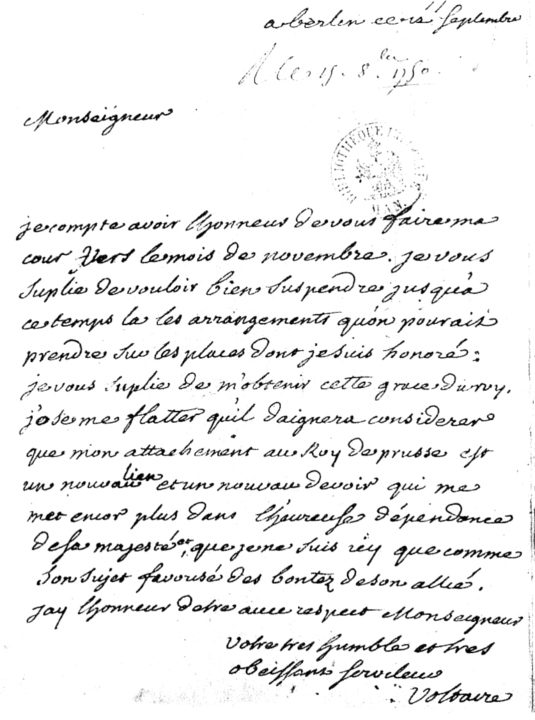 a berlin ce 11 septembre
R le 15. 8bre 1750
Monseigneur
BIBLIOTHEQUE
MAN
je compte avoir lhonneur de vous faire ma
cour vers le mois de novembre. je vous
suplie de vouloir bien suspendre jusqu'a
ce temps la les arrangements qu'on pourait
prendre sur les places dont je suis honoré:
je vous suplie de m'obtenir cette grace du roy.
j'ose me flatter qu'il daignera considerer
que mon attachement au Roy de prusse est
un nouvau lien et un nouvau devoir qui me
met encor plus dans l'heureuse dépendance
de sa majesté et, que je ne suis icy que comme
son sujet favorisé des bontez de son allié.
jay lhonneur detre avec respect Monseigneur
votre tres humble et tres
obeissant serviteur
Voltaire